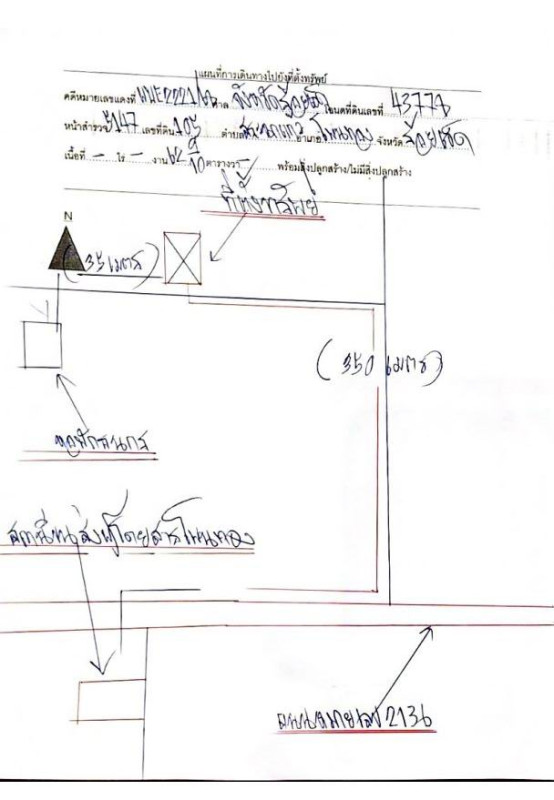 แผนที่การเดินทางไปยังที่ตั้งทรัพย์
คดีหมายเลขแดงที่ ผบE2221/66 ศาล จังหวัดร้อยเอ็ด โฉนดที่ดินเลขที่ 43778
หน้าสำรวจ 5147 เลขที่ดิน 105 ตำบล สระนกแก้ว อำเภอ โพนทอง จังหวัด ร้อยเอ็ด
เนื้อที่ - ไร่ - งาน ตารางวา พร้อมสิ่งปลูกสร้าง/ไม่มีสิ่งปลูกสร้าง
ที่ตั้งทรัพย์
N
(35 เมตร)
(350 เมตร)
สถานีขนส่งผู้โดยสารโพนทอง
ถนนหมายเลข 2136